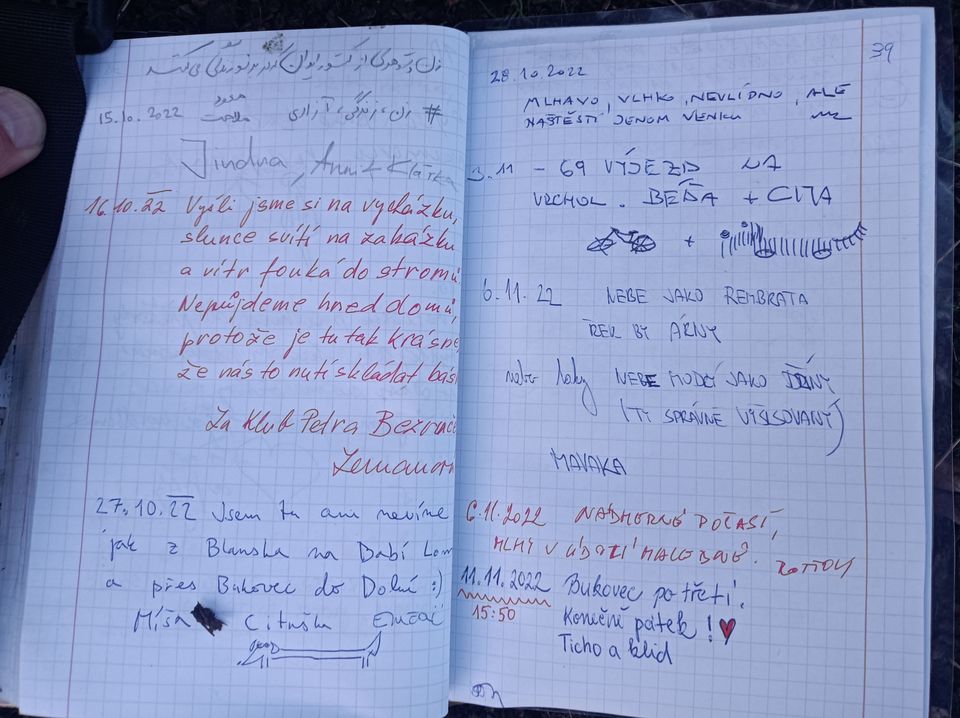 15.10.2022
# زن، زندگی، آزادی
Jindra,
16.10.22 Vyšli jsme si na vycházku,
slunce svítí na zakázku
a vítr fouká do stromů.
Nepůjdeme hned domů,
protože je tu tak krásně,
že nás to nutí skládat bás
Za Klub Petra Bezruče
Zemanovi
27.10.22 Jsem tu ani nevíme
jak z Blanska na Babí Lom
a přes Bukovec do Dolní :)
Míša Citruška
39
28.10.2022
MLHAVO, VLHKO, NEVLÍDNO, ALE
NAŠTĚSTÍ JENOM VENKU
3.11 - 69 VÝJEZD NA
VRCHOL. BEĎA +
+
6.11.22 NEBE JAKO REMBRATA
ŘEK BY ÁRNY
nebo taky NEBE MODŘÍ JAKO
(TY SPRÁVNĚ VYŠISOVANÝ)
MAVAKA
6.11.2022 NÁDHERNÉ POČASÍ,
MLHY V ÚDOLÍ
11.11.2022 Bukovec potřetí.
15:50 Konečně pátek! ♥
Ticho a klid